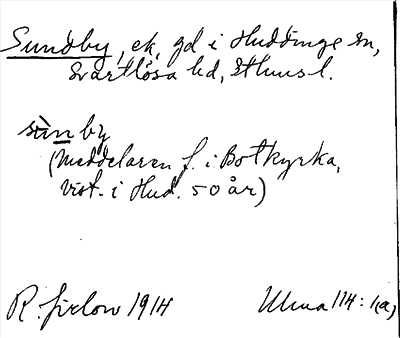 Sundby, ek, gd i Huddinge sn,
Svartlösa hd, Sthms l.
sùn by
(Meddelaren f. i Botkyrka,
vist. i Hud. 50 år)
R. Jirlow 1914 Ulma 114:1(a)